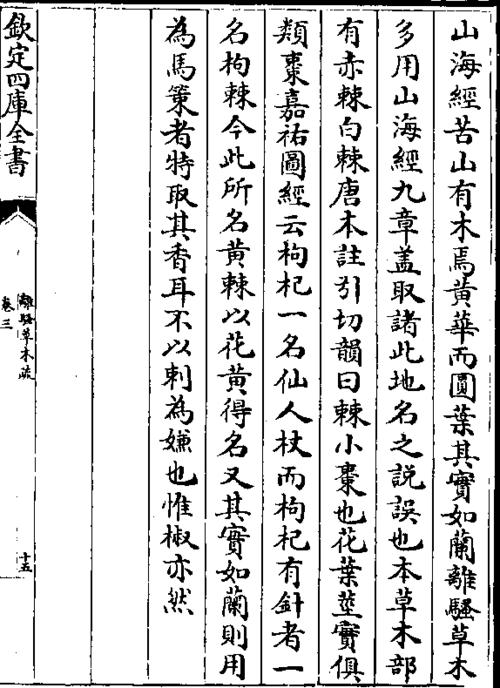 山海經苦山有木焉黃華而圓葉其實如蘭離騷草木
多用山海經九章盖取諸此地名之説誤也本草木部
有赤棘白棘唐本註引切韻曰棘小棗也花葉莖實俱
類棗嘉祐圖經云枸杞一名仙人杖而枸杞有針者一
名枸棘今此所名黃棘以花黃得名又其實如蘭則用
為馬策者特取其香耳不以刺為嫌也惟椒亦然
欽定四庫全書
離騷草木疏
卷三
十五